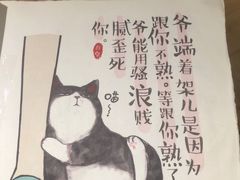 爷端着架儿是因为
跟你不熟。等跟你熟了
爷能用骚浪贱
腻歪死
你。
喵~